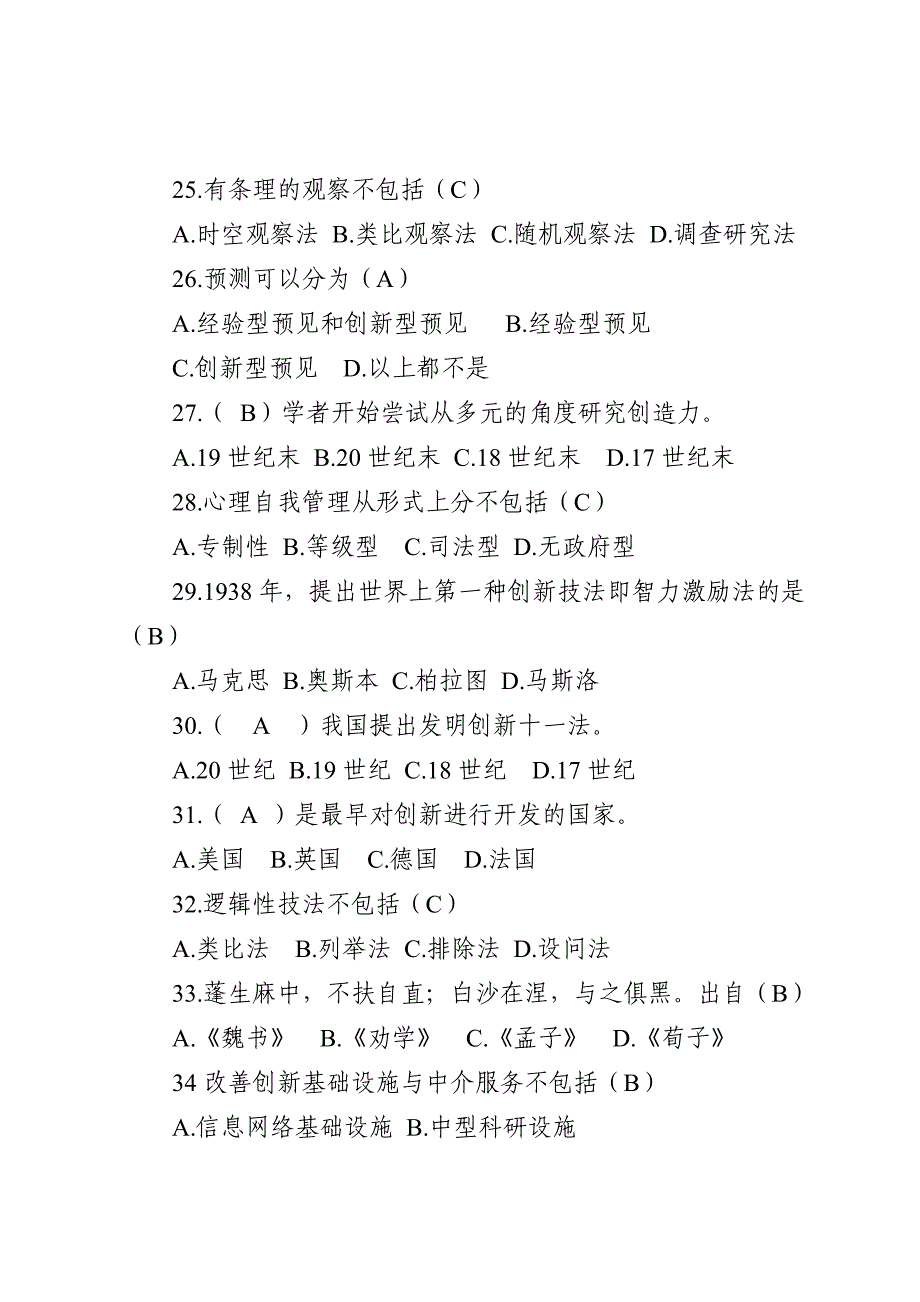 25.有条理的观察不包括（C）
A.时空观察法 B.类比观察法 C.随机观察法 D.调查研究法
26.预测可以分为（A）
A.经验型预见和创新型预见 B.经验型预见
C.创新型预见 D.以上都不是
27.（ B）学者开始尝试从多元的角度研究创造力。
A.19 世纪末 B.20 世纪末 C.18 世纪末 D.17 世纪末
28.心理自我管理从形式上分不包括（C）
A.专制性 B.等级型 C.司法型 D.无政府型
29.1938 年，提出世界上第一种创新技法即智力激励法的是
（B）
A.马克思 B.奥斯本 C.柏拉图 D.马斯洛
30.（ A ）我国提出发明创新十一法。
A.20 世纪 B.19 世纪 C.18 世纪 D.17 世纪
31.（ A ）是最早对创新进行开发的国家。
A.美国 B.英国 C.德国 D.法国
32.逻辑性技法不包括（C）
A.类比法 B.列举法 C.排除法 D.设问法
33.蓬生麻中，不扶自直；白沙在涅，与之俱黑。出自（B）
A.《魏书》 B.《劝学》 C.《孟子》 D.《荀子》
34 改善创新基础设施与中介服务不包括（B）
A.信息网络基础设施 B.中型科研设施